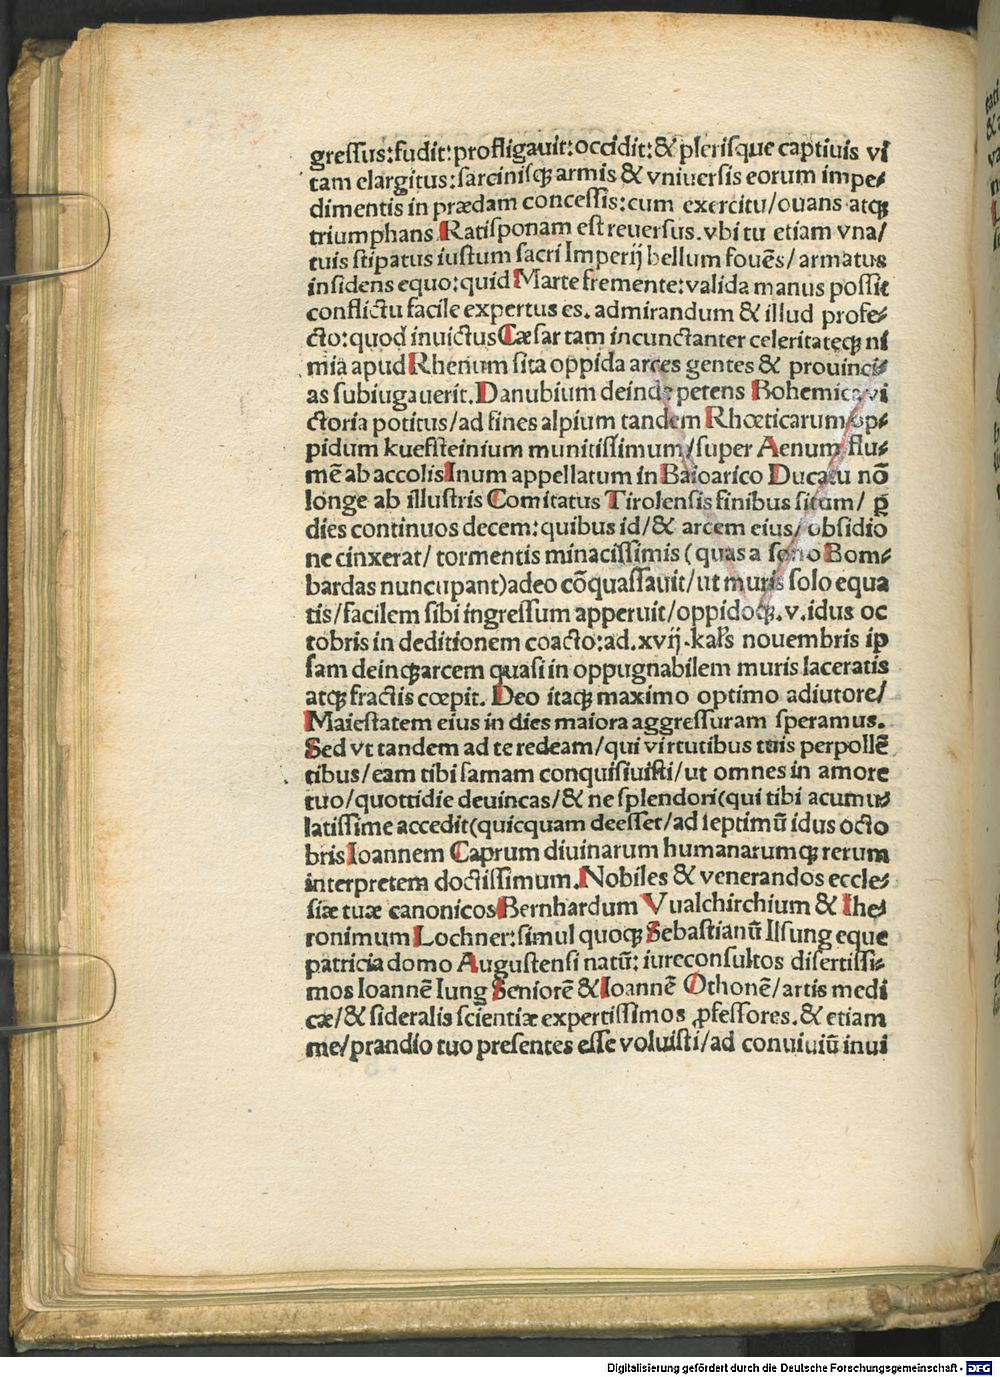 greſſus:fudit:profligauit:occidit:& pleriſque captiuis vi
tam elargitus:ſarciniſqꝫ armis & vniuerſis eorum impe⸗
dimentis in prædam conceſſis:cum exercitu/ouans atqꝫ
triumphans Ratiſponam eſt reuerſus.vbi tu etiam vna/
tuis ſtipatus iuſtum ſacri Imperij bellum fouēs/armatus
inſidens equo:quid Marte fremente:valida manus poſſit
conflictu facile expertus es.admirandum & illud profe⸗
cto:quod inuictus Cæſar tam incunctanter celeritateqꝫ ni
mia apud Rhenum ſita oppida arces gentes & prouinci⸗
as ſubiugauerit.Danubium deinde petens Bohemica vi
ctoria potitus/ad fines alpium tandem Rhœticarum/op⸗
pidum kuefſteinium munitiſſimum/ſuper Aenum flu⸗
mē ab accolis Inum appellatum in Baioarico Ducatu nō
longe ab illuſtris Comitatus Tirolenſis finibus ſitum/ ꝑ
dies continuos decem:quibus id/& arcem eius/obſidio
ne cinxerat/tormentis minaciſſimis (quas a ſono Bom⸗
bardas nuncupant)adeo cōquaſſauit/ut muris ſolo equa
tis/facilem ſibi ingreſſum apperuit/oppidoqꝫ.v.idus oc
tobris in deditionem coacto:ad.xvij.kaꝉs nouembris ip
ſam deinqꝫ arcem quaſi in oppugnabilem muris laceratis
atqꝫ fractis cœpit. Deo itaqꝫ maximo optimo adiutore/
Maieſtatem eius in dies maiora aggreſſuram ſperamus.
Sed vt tandem ad te redeam/qui virtutibus tuis perpollē
tibus/eam tibi famam conquiſiuiſti/ut omnes in amore
tuo/quottidie deuincas/& ne ſplendori(qui tibi acumu⸗
latiſſime accedit(quicquam deeſſet/ad ſeptimū idus octo
bris Ioannem Caprum diuinarum humanarumqꝫ rerum
interpretem doctiſſimum.Nobiles & venerandos eccle⸗
ſiæ tuæ canonicos Bernhardum Vualchirchium & Ihe⸗
ronimum Lochner:ſimul quoqꝫ Sebaſtianū Ilſung eque
patricia domo Auguſtenſi natū:iureconſultos diſertiſſi⸗
mos Ioannē Iung Seniorē & Ioannē Othonē/artis medi
cæ/& ſideralis ſcientiæ expertiſſimos ꝓfeſſores.& etiam
me/prandio tuo preſentes eſſe voluiſti/ad conuiuiū inui
Digitalisierung gefördert durch die Deutsche Forschungsgemeinschaft - DFG